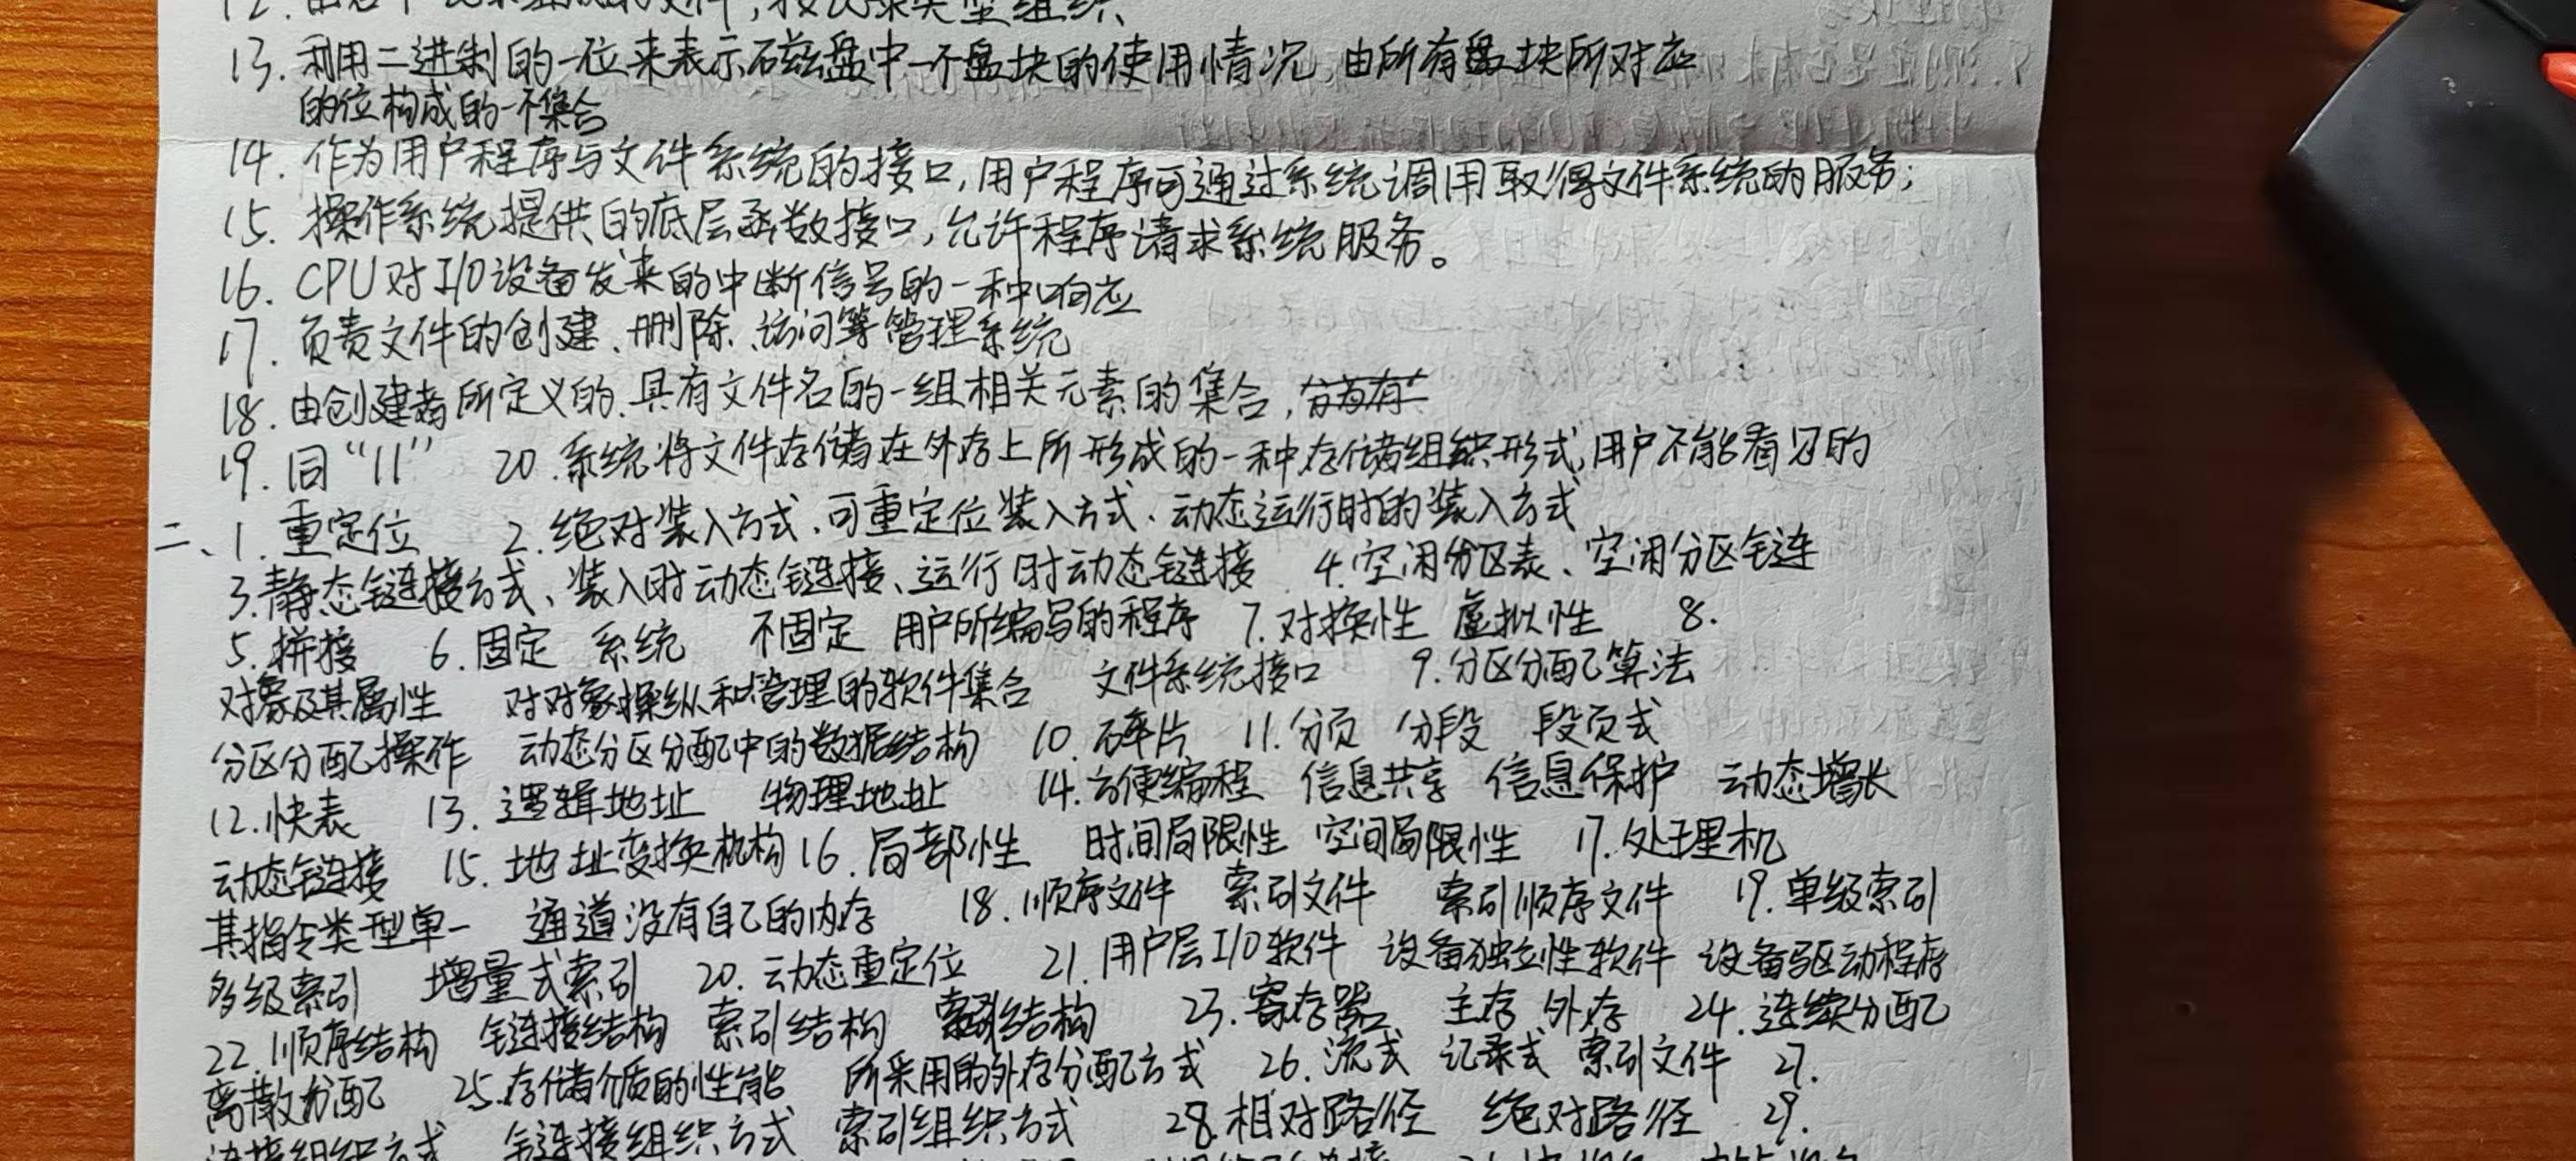 12.
13. 利用二进制的一位来表示磁盘中一个盘块的使用情况,由所有盘块所对应
的位构成的一个集合
14. 作为用户程序与文件系统的接口,用户程序可通过系统调用取得文件系统的服务;
15. 操作系统提供的底层函数接口,允许程序请求系统服务。
16. CPU对I/O设备发来的中断信号的一种响应
17. 负责文件的创建、删除、访问等管理系统
18. 由创建者所定义的、具有文件名的一组相关元素的集合,分为有
19. 同“11” 20. 系统将文件存储在外存上所形成的一种存储组织形式,用户不能看见的
二、1. 重定位 2. 绝对装入方式、可重定位装入方式、动态运行时的装入方式
3. 静态链接方式、装入时动态链接、运行时动态链接 4. 空闲分区表、空闲分区链
5. 拼接 6. 固定 系统 不固定 用户所编写的程序 7. 对换性 虚拟性 8.
对象及其属性 对对象操纵和管理的软件集合 文件系统接口 9. 分区分配算法
分区分配操作 动态分区分配中的数据结构 10. 碎片 11. 分页 分段 段页式
12. 快表 13. 逻辑地址 物理地址 14. 方便编程 信息共享 信息保护 动态增长
动态链接 15. 地址变换机构 16. 局部性 时间局限性 空间局限性 17. 处理机
其指令类型单一 通道没有自己的内存 18. 顺序文件 索引文件 索引顺序文件 19. 单级索引
多级索引 增量式索引 20. 动态重定位 21. 用户层I/O软件 设备独立性软件 设备驱动程序
22. 顺序结构 链接结构 索引结构 索引结构 23. 寄存器 主存 外存 24. 连续分配
离散分配 25. 存储介质的性能 所采用的外存分配方式 26. 流式 记录式 索引文件 27.
组织方式 链接组织方式 索引组织方式 28. 相对路径 绝对路径 29.